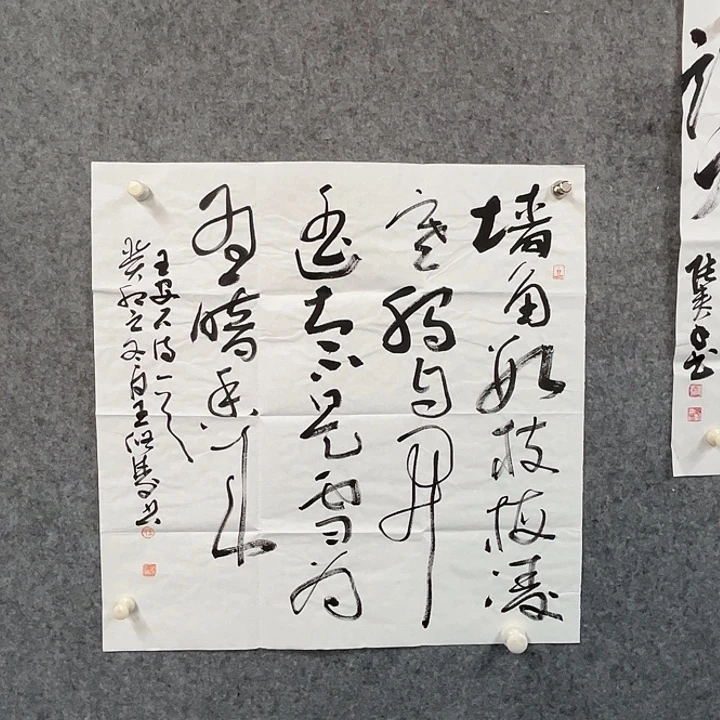 墙角数枝梅凌
寒独自开
遥知不是雪为
有暗香来
王安石诗一首
癸卯之冬